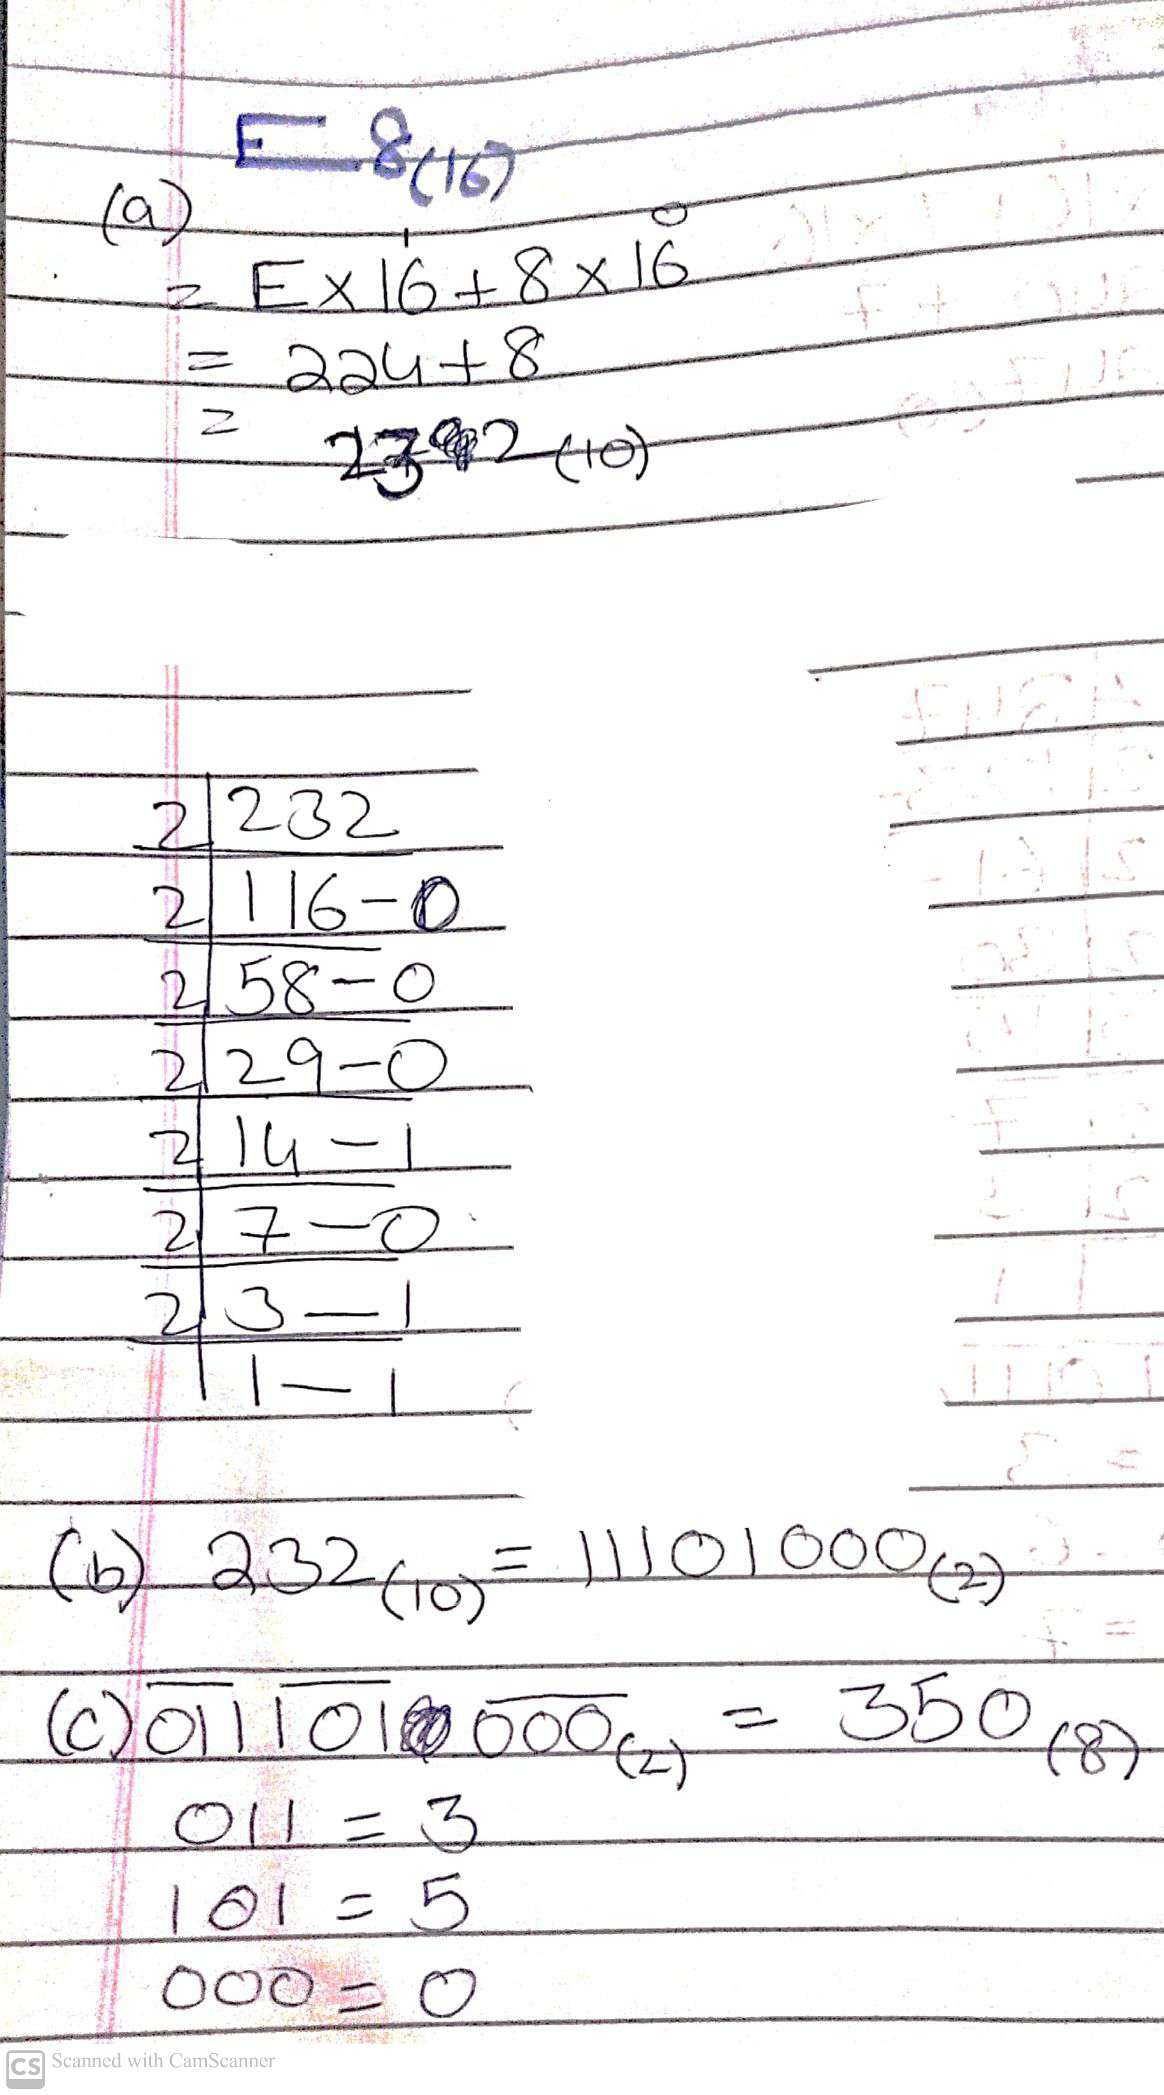 E8(16)
(a)
= E×16¹ + 8×16⁰
= 224+8
= 232 (10)
2 | 232
2 | 116 - 0
2 | 58 - 0
2 | 29 - 0
2 | 14 - 1
2 | 7 - 0
2 | 3 - 1
1 - 1
(b) 232(10) = 11101000(2)
(c) 011 101 000(2) = 350(8)
011 = 3
101 = 5
000 = 0
CS Scanned with CamScanner